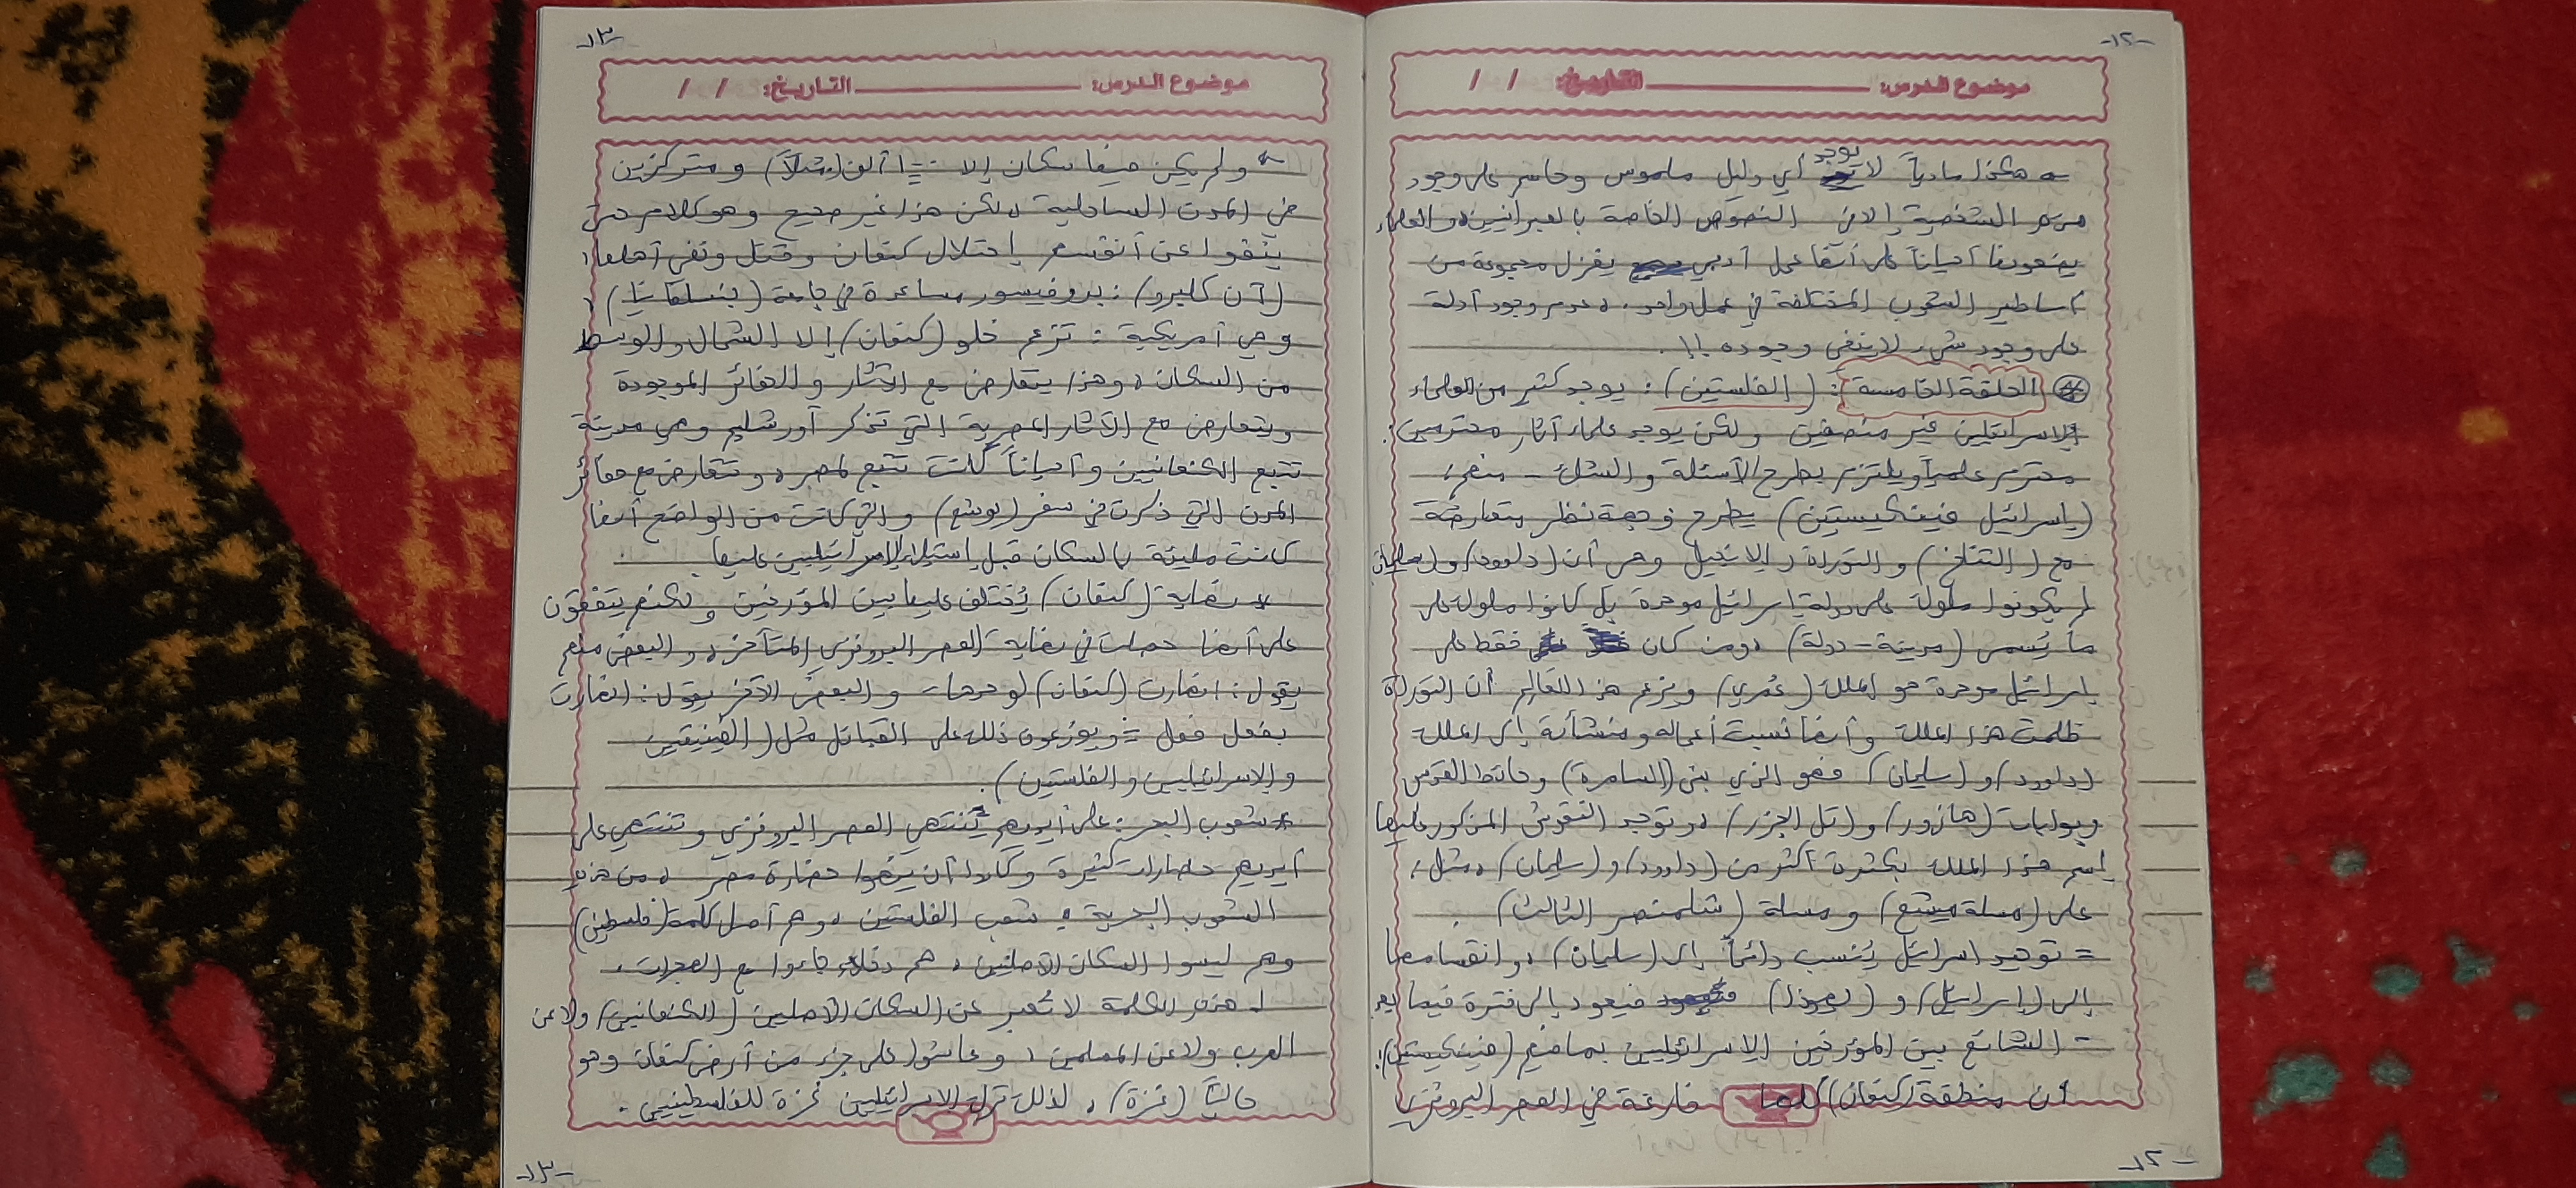 -١٢-
موضوع الدرس: التاريخ: / /
هكذا مادياً لا يوجد أي دليل ملموس وحاسم على وجود
هذه الشخصية إلا في النصوص الخاصة بالعبرانيين، والعلماء
يضعونها أحياناً على أنها عمل أدبي يغزل مجموعة من
أساطير الشعوب المختلفة في عمل واحد. عدم وجود أدلة
على وجود شيء لا ينفي وجوده !!.
الحلقة الخامسة: (الفلستين): يوجد كثير من العلماء
الإسرائلين غير منصفين ولكن يوجد علماء آثار محترمين:
محترم علمياً ويلتزم بطرح الأسئلة والشك - منهم:
(إسرائيل فينكيستين) يطرح وجهة نظر متعارضة
مع (التناخ) والتوراة والإنجيل وهي أن (داوود) و(سليمان)
لم يكونوا ملوك على دولة إسرائيل موحدة بل كانوا ملوك على
ما يُسمى (مدينة - دولة) ومن كان فقط على
إسرائيل موحدة هو الملك (عُمري) ويزعم هذا العالِم أن التوراة
ظلمت هذا الملك وأنها نسبت أعماله ومنشأته إلى الملك
(داوود) و(سليمان) فهو الذي بنى (السامرة) وحائط القدس
وبوابات (هازور) و(تل الجزر)، وتوجد النقوش المذكور عليها
إسم هذا الملك بكثرة أكثر من (داوود) و(سليمان)، مثل:
على (مسلة ميشع) ومسلة (شلمنصر الثالث).
= توحيد اسرائيل يُنسب دائماً إلى (سليمان)، وانقسامها
إلى (إسرائيل) و (يهوذا) فيعود إلى فترة فيما بعد
- الشائع بين المؤرخين الإسرائيليين بما فيهم (فينكيستين):
أن منطقة (كنعان) كلها فارغة في العصر البرونزي
-١٢-
-١٣-
موضوع الدرس: التاريخ: / /
ولم يكن فيها سكان إلا ألف (مثلاً) ومتركزين
في المدن الساحلية، لكن هذا غير صحيح وهو كلام حتى
ينفوا عن أنفسهم إحتلال كنعان وقتل ونفي أهلها،
(آن كليرو): بروفيسور مساعدة في جامعة (بنسلفانيا)،
وهي أمريكية: تزعم خلو (كنعان) إلا الشمال والوسط
من السكان، وهذا يتعارض مع الآثار والحفائر الموجودة
ويتعارض مع الآثار المصرية التي تذكر أورشليم وهي مدينة
تتبع الكنعانيين وأحياناً كانت تتبع لمصر، وتتعارض مع حفائر
المدن التي ذكرت في سفر (يوشع) والتي كانت من الواضح أنها
كانت مليئة بالسكان قبل إستيلاء الإسرائيليين عليها.
* نهاية (كنعان) يُختلف عليها بين المؤرخين ولكنهم يتفقون
على أنها حصلت في نهاية العصر البرونزي المتأخر، والبعض منهم
يقول: انهارت (كنعان) لوحدها - والبعض الآخر يقول: انهارت
بفعل فعل ويوزعون ذلك على القبائل مثل (الفينيقين
والإسرائيليين والفلستين).
* شعوب البحر: على أيديهم يَنتهي العصر البرونزي وتنتهي على
أيديهم حضارات كثيرة وكادوا أن ينهوا حضارة مصر، من هذه
الشعوب البحرية: شعب الفلستين، وهم أصل كلمة (فلسطين)
وهم ليسوا السكان الأصلين، هم دخلاء جاءوا مع الهجرات،
هذه الكلمة لا تُعبر عن السكان الأصلين (الكنعانيين) ولا عن
العرب ولا عن المسلمين، وعاشوا على جزء من أرض كنعان وهو
حالياً (غزة)، لذلك ترك الإسرائيليين غزة للفلسطينيين.
-١٣-